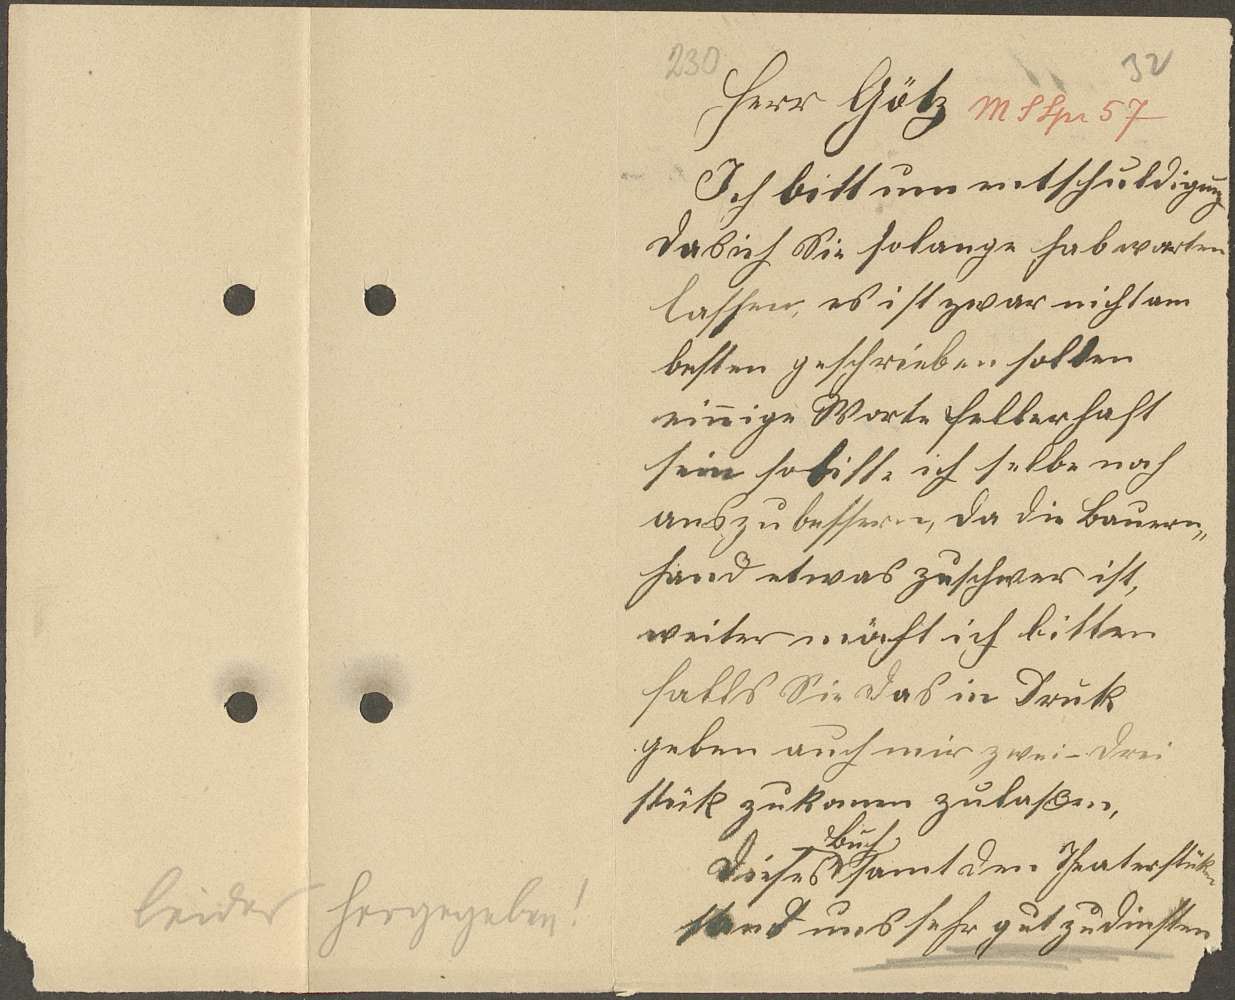 230
32
Herr Götz
M S Spr 57
Ich bitt um entschuldigung
das ich Sie solange hab warten
lassen, es ist zwar nicht am
besten geschrieben sollten
einige Worte fellerhaft
sein so bitte ich selbe noch
auszubessern, da die bauern„
hand etwas zuschwer ist,
weiter möcht ich bitten
falls Sie das in Druk
geben auch mir zwei-drei
stük zukomen zulaßen,
Buch
Dieses samt den Theaterstüken
stend uns sehr gut zudinsten
leider hergegeben!